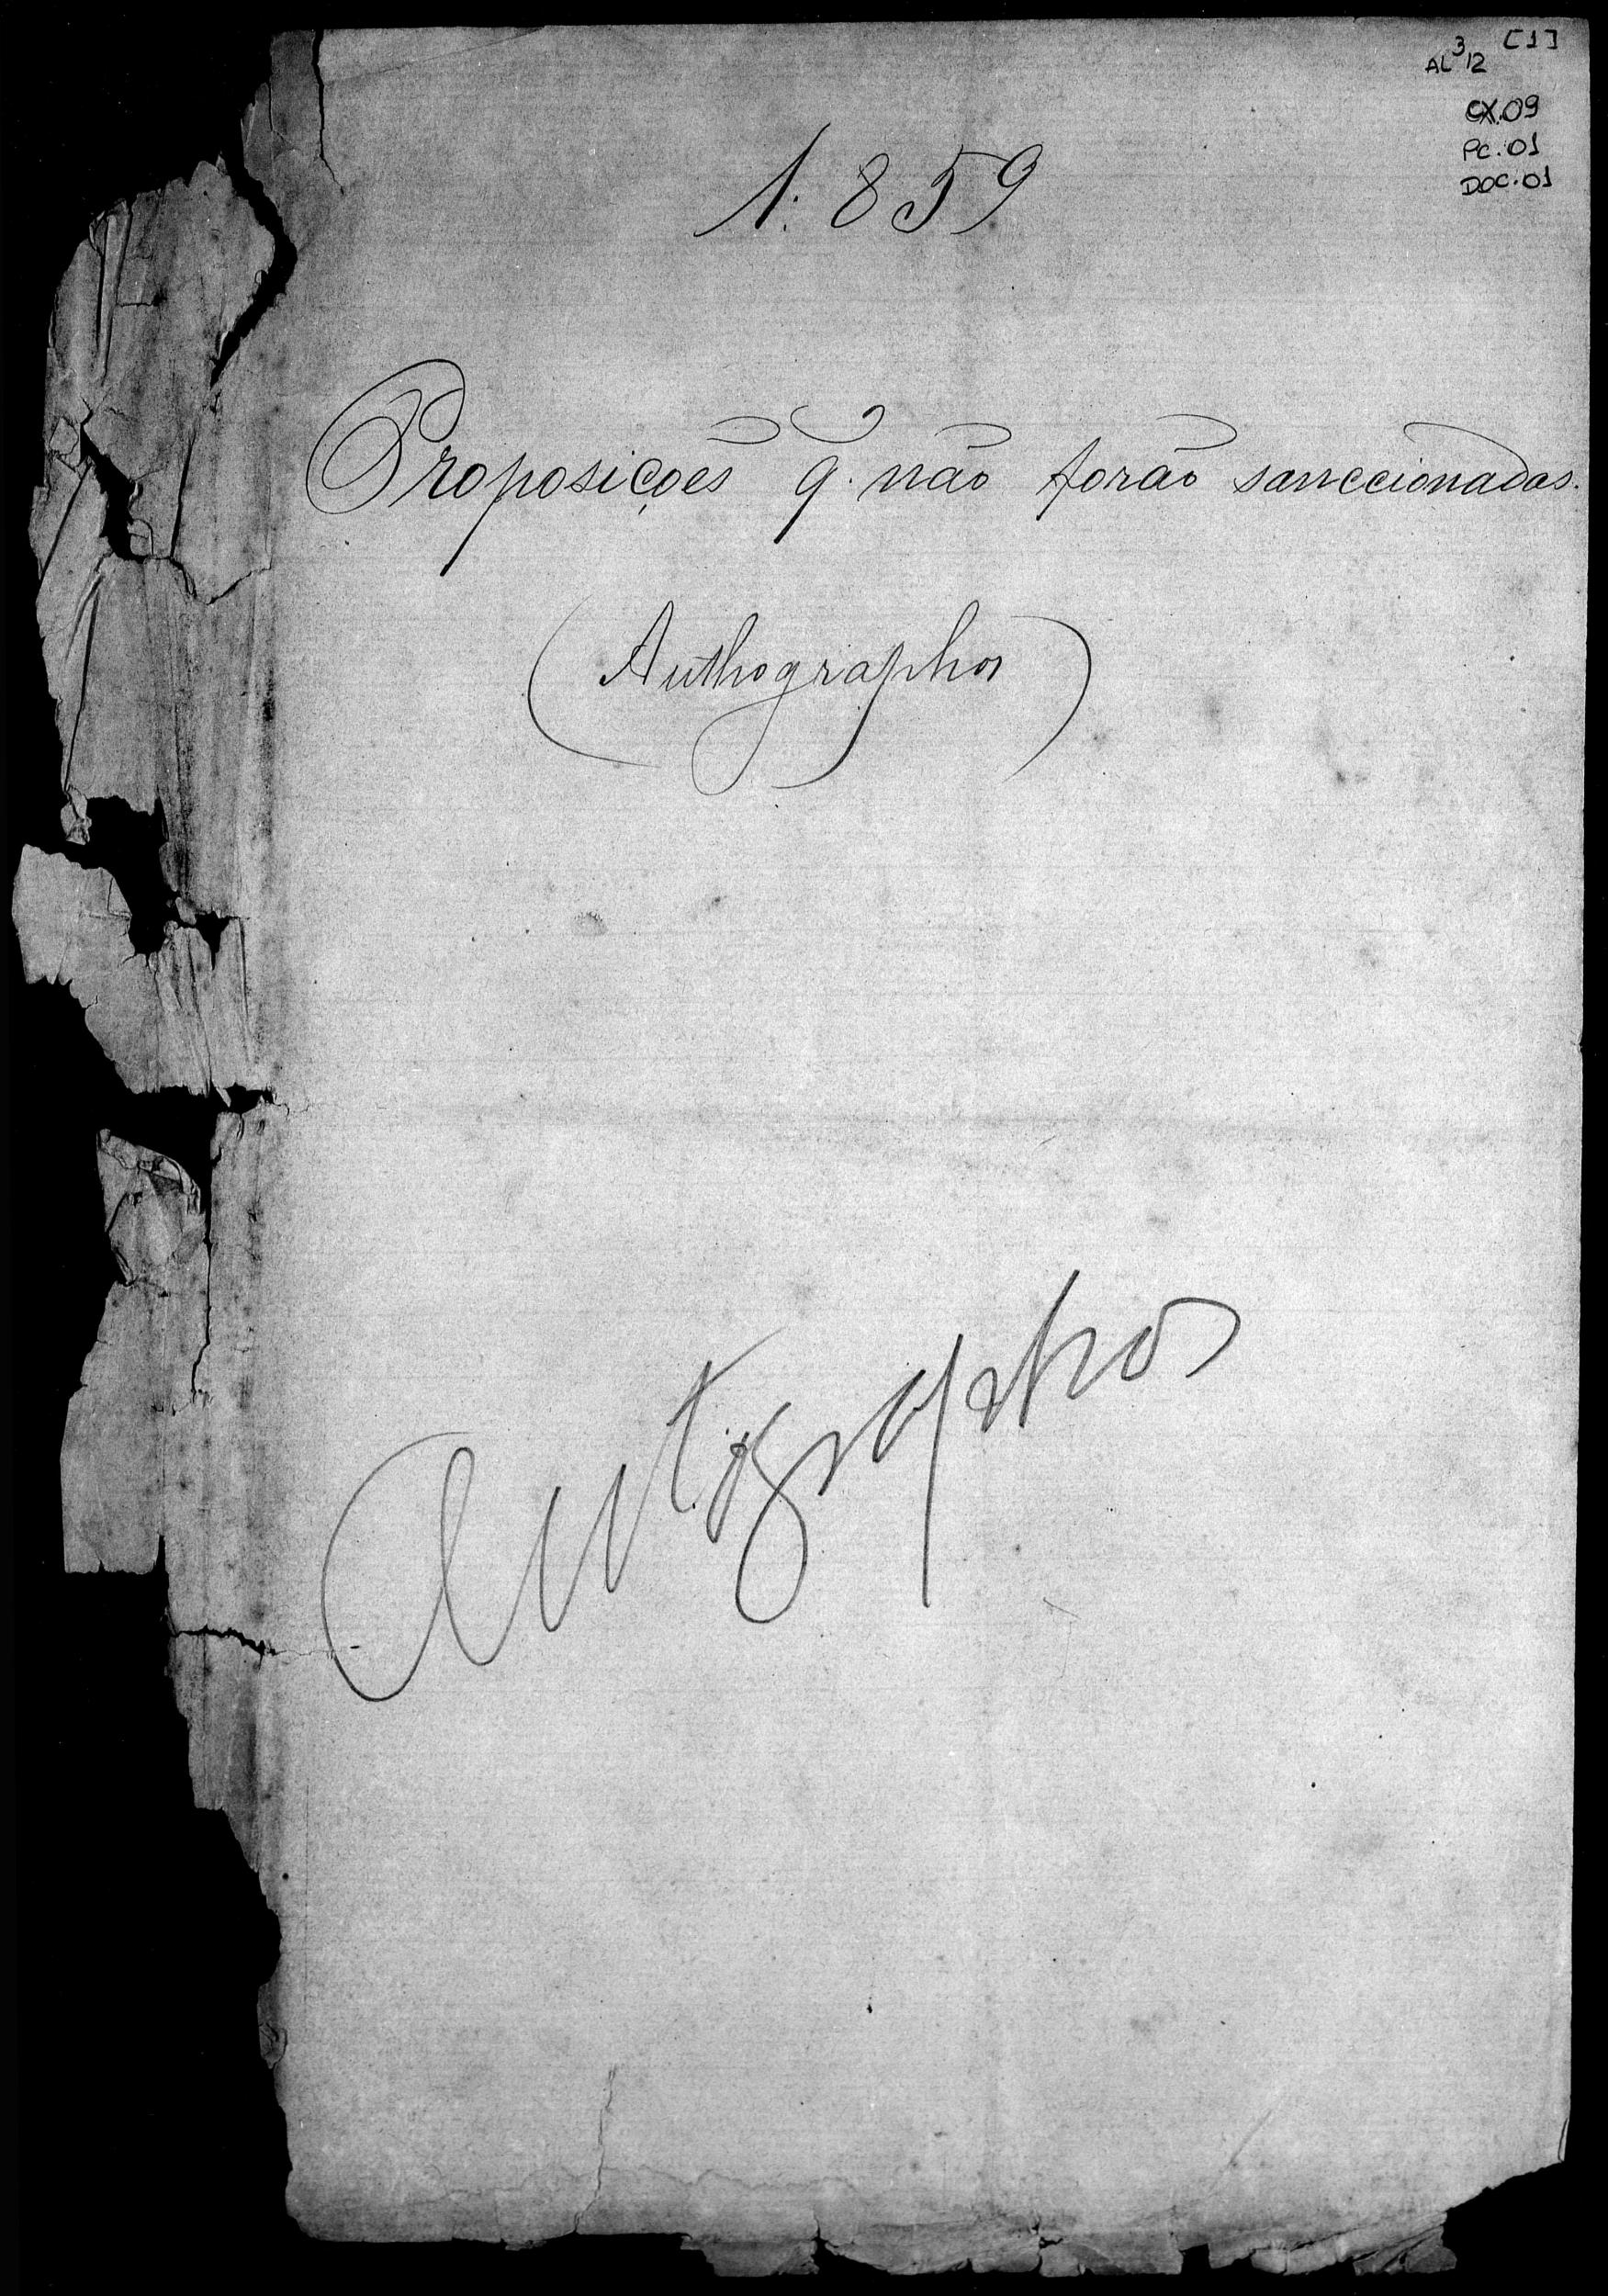 [1]
AL 3/12
CX.09
PC.01
DOC.01
1:859
Proposições q. não forão sanccionadas.
(Authographos)
Autographos